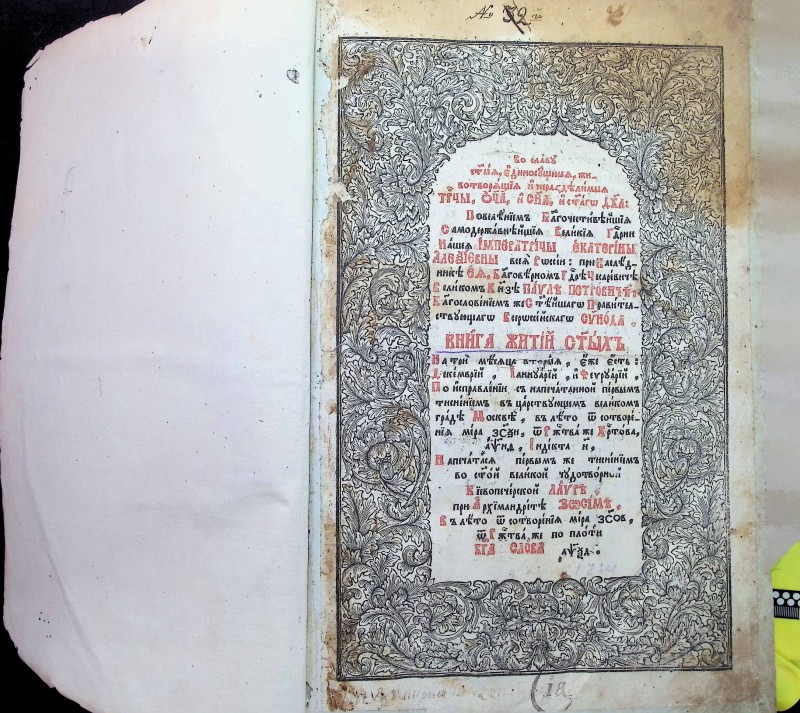 № 32
Во славу
ст҃ыѧ, єдиносущныѧ, жи-
вотворѧщїѧ и нераздѣлимыѧ
Трⷪ҇цы, Оц҃а, и Сн҃а, и ст҃агѡ Дх҃а:
Повелѣнїемъ Благочестивѣйшїѧ
Самодержавнѣйшїѧ Великїѧ Гдⷭ҇рни
Нашеѧ Імператрїцы Єкатерїны
Алеѯїевны всеѧ Рѡссїи: при Наслѣд-
никѣ Єѧ, Благовѣрномъ Гдⷭ҇рѣ Цесаревичѣ
Великомъ Кнѧзѣ Паѵлѣ Петровичѣ:
Благословенїемъ же Ст҃ѣйшагѡ Правитель-
ствующагѡ Всерѡссїйскагѡ Сѵнода.
Книга житїй ст҃ыхъ
На три мѣсѧца вторыѧ, єже єсть:
Декемврїй, Іаннуарїй, и Феѵруарїй,
По исправленїи съ напечатанной первымъ
тисненїемъ въ царствующемъ великомъ
градѣ Москвѣ, въ лѣто ѿ сотворе-
нїѧ мїра ,
ѿ Ржⷭ҇тва же Хрⷭ҇това,
, Індїкта и҃,
Напечатасѧ первымъ же тисненїемъ
во ст҃ой великой чудотворной
Кїевопечерской Лаѵрѣ,
при Архїмандрїтѣ Зѡсїмѣ.
Въ лѣто ѿ сотворенїѧ мїра ҂зс҃ов,
ѿ Ржⷭ҇тва же по плоти
Бг҃а Слова ҂аѱ҃ѯд.
1764
18